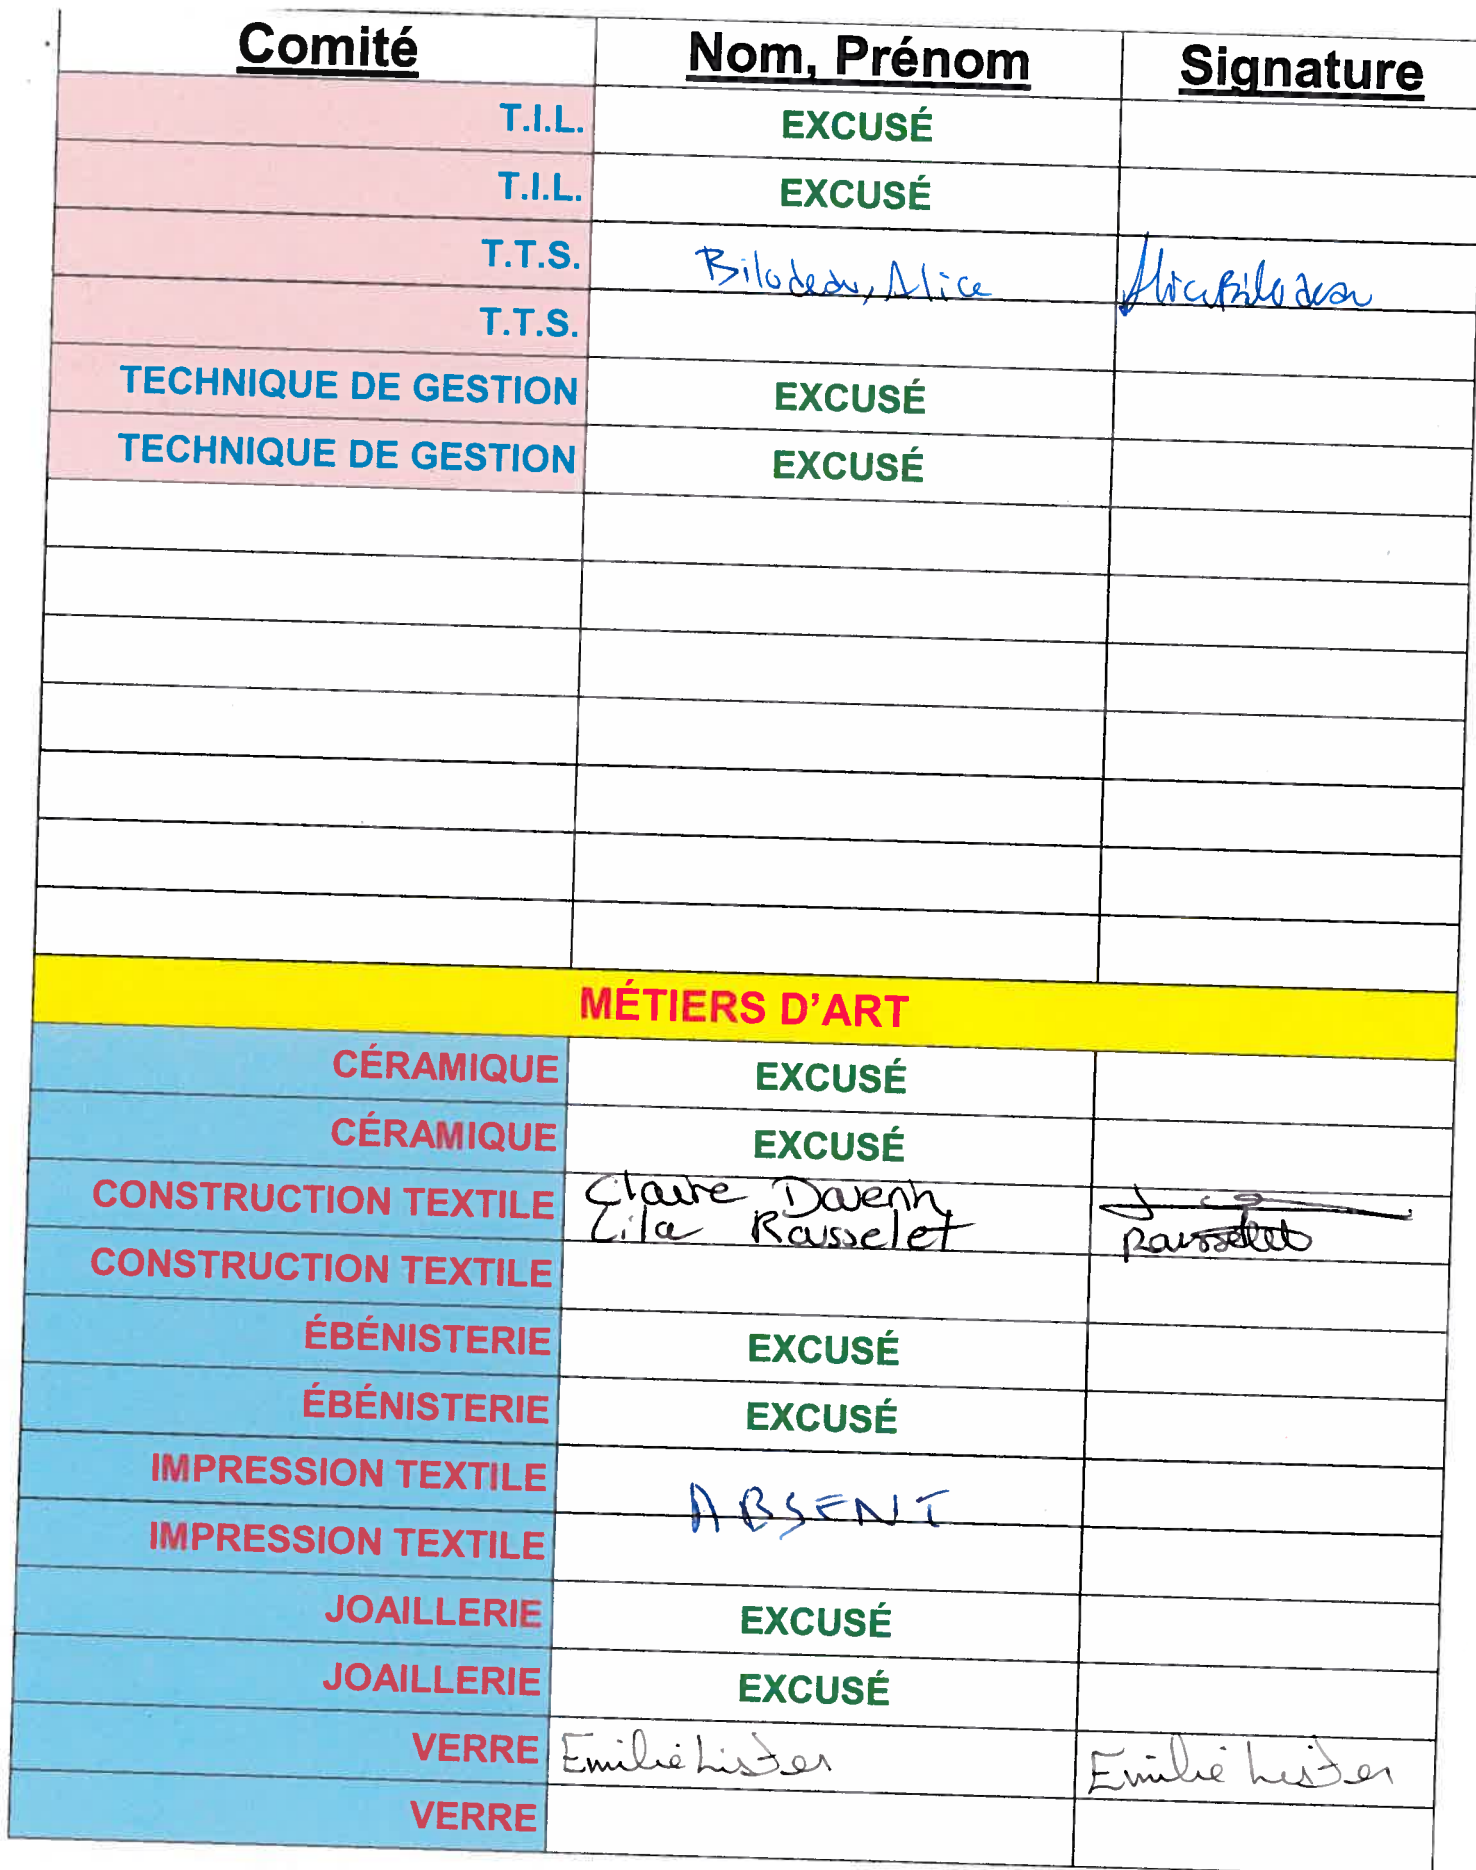 Comité Nom, Prénom Signature
T.I.L. EXCUSÉ
T.I.L. EXCUSÉ
T.T.S. Bilodeau, Alice Alice Bilodeau
T.T.S.
TECHNIQUE DE GESTION EXCUSÉ
TECHNIQUE DE GESTION EXCUSÉ
MÉTIERS D'ART
CÉRAMIQUE EXCUSÉ
CÉRAMIQUE EXCUSÉ
CONSTRUCTION TEXTILE Claire
Lila Rousselet Rousselet
CONSTRUCTION TEXTILE
ÉBÉNISTERIE EXCUSÉ
ÉBÉNISTERIE EXCUSÉ
IMPRESSION TEXTILE ABSENT
IMPRESSION TEXTILE
JOAILLERIE EXCUSÉ
JOAILLERIE EXCUSÉ
VERRE Emilie Lister Emilie Lister
VERRE